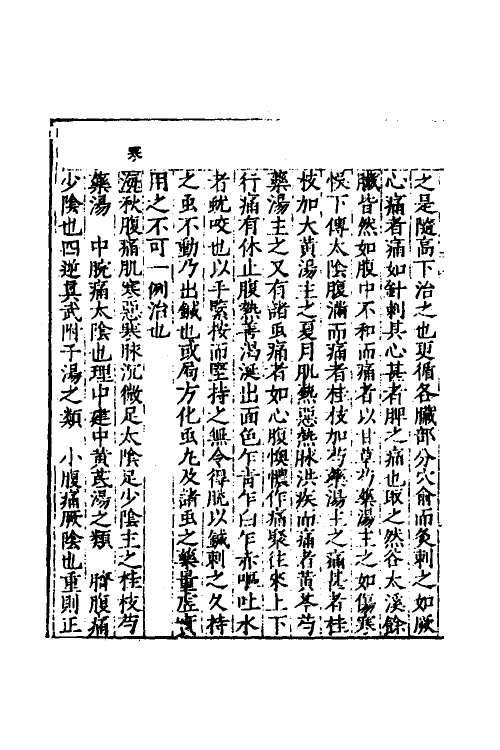 之是隨高下治之也更循各臟部分穴俞而灸刺之如厥
心痛者痛如針刺其心甚者脾之痛也取之然谷太溪餘
臟皆然如腹中不和而痛者以甘草芍藥湯主之如傷寒
悞下傳太陰腹滿而痛者桂枝加芍藥湯主之痛甚者桂
枝加大黃湯主之夏月肌熱惡熱脉洪疾而痛者黃芩芍
藥湯主之又有諸虫痛者如心腹懊憹作痛聚往來上下
行痛有休止腹熱善渴涎出面色乍青乍白乍赤嘔吐水
者蚘咬也以手緊按而堅持之無令得脫以鍼刺之久持
之虫不動乃出鍼也或局方化虫丸及諸虫之藥量虛實
用之不可一例治也
寒
秋腹痛肌寒惡寒脉沉微足太陰足少陰主之桂枝芍
藥湯 中脘痛太陰也理中建中黃芪湯之類 臍腹痛
少陰也四逆真武附子湯之類 小腹痛厥陰也重則正